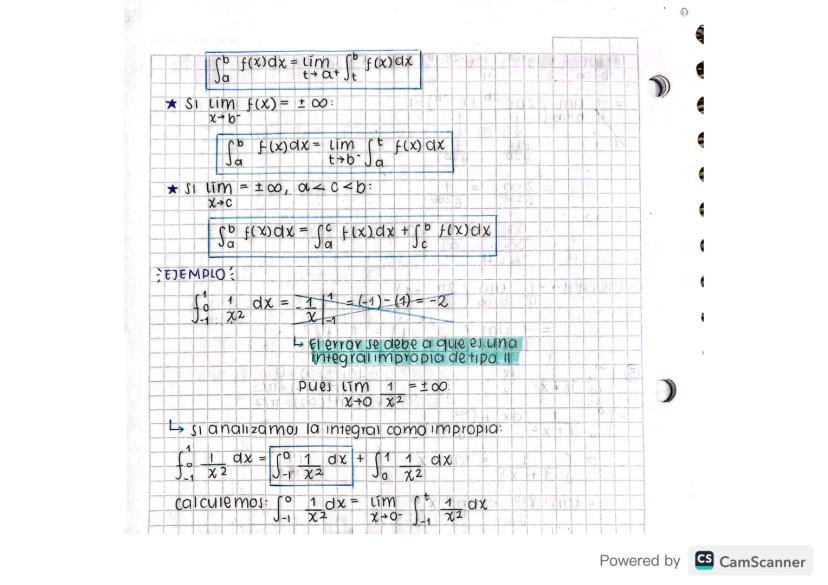 ∫_a^b f(x)dx = lím_{t→a+} ∫_t^b f(x)dx
★ Si lím_{x→b-} f(x) = ± ∞:
∫_a^b f(x)dx = lím_{t→b-} ∫_a^t f(x)dx
★ Si lím_{x→c} = ± ∞, a < c < b:
∫_a^b f(x)dx = ∫_a^c f(x)dx + ∫_c^b f(x)dx
EJEMPLO:
∫_{-1}^1 0 1/x² dx = -1/x |_{-1}^1 = (-1) - (1) = -2
↳ El error se debe a que es una
integral impropia de tipo II
pues lím_{x→0} 1/x² = ± ∞
↳ si analizamos la integral como impropia:
∫_{-1}^1 0 1/x² dx = ∫_{-1}^0 1/x² dx + ∫_0^1 1/x² dx
calculemos: ∫_{-1}^0 1/x² dx = lím_{x→0-} ∫_{-1}^t 1/x² dx
Powered by CS CamScanner